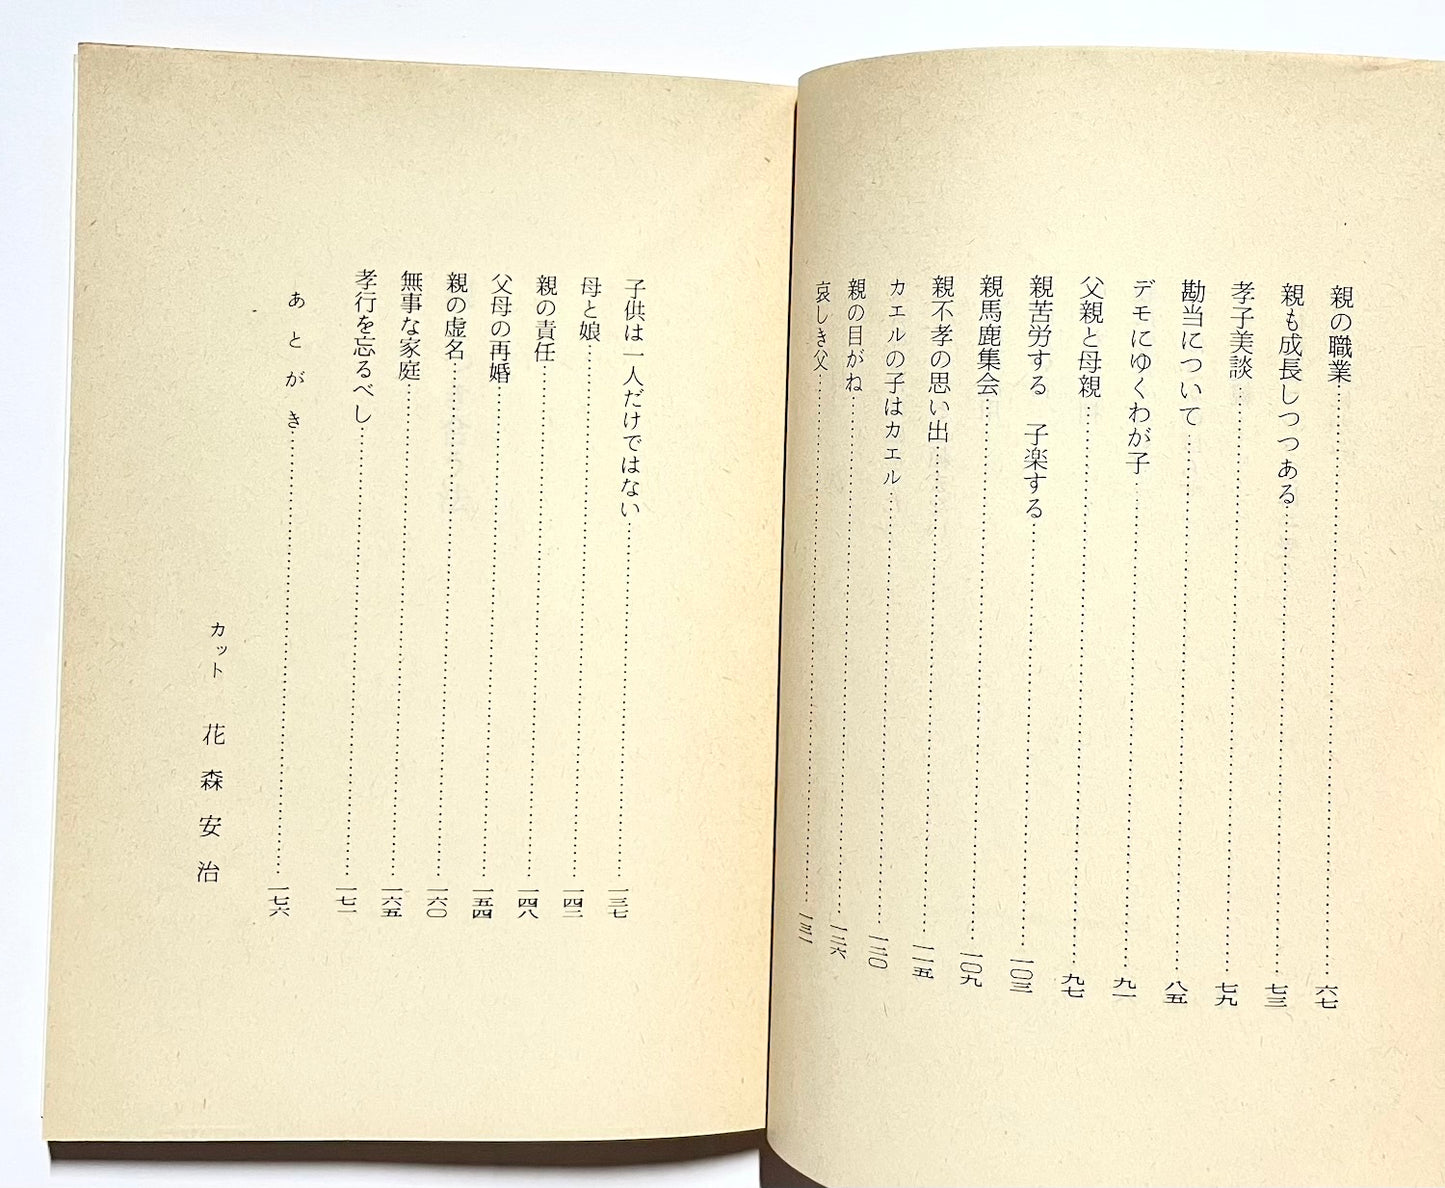 親の職業……六七
親も成長しつつある……七三
孝子美談……七九
勘当について……八五
デモにゆくわが子……九一
父親と母親……九七
親苦労する　子楽する……一〇三
親馬鹿集会……一〇九
親不孝の思い出……一一五
カエルの子はカエル……一二〇
親の目がね……一二六
哀しき父……一三一
子供は一人だけではない……一三七
母と娘……一四二
親の責任……一四八
父母の再婚……一五四
親の虚名……一六〇
無事な家庭……一六五
孝行を忘るべし……一七一
あとがき……一七六
カット　花森安治